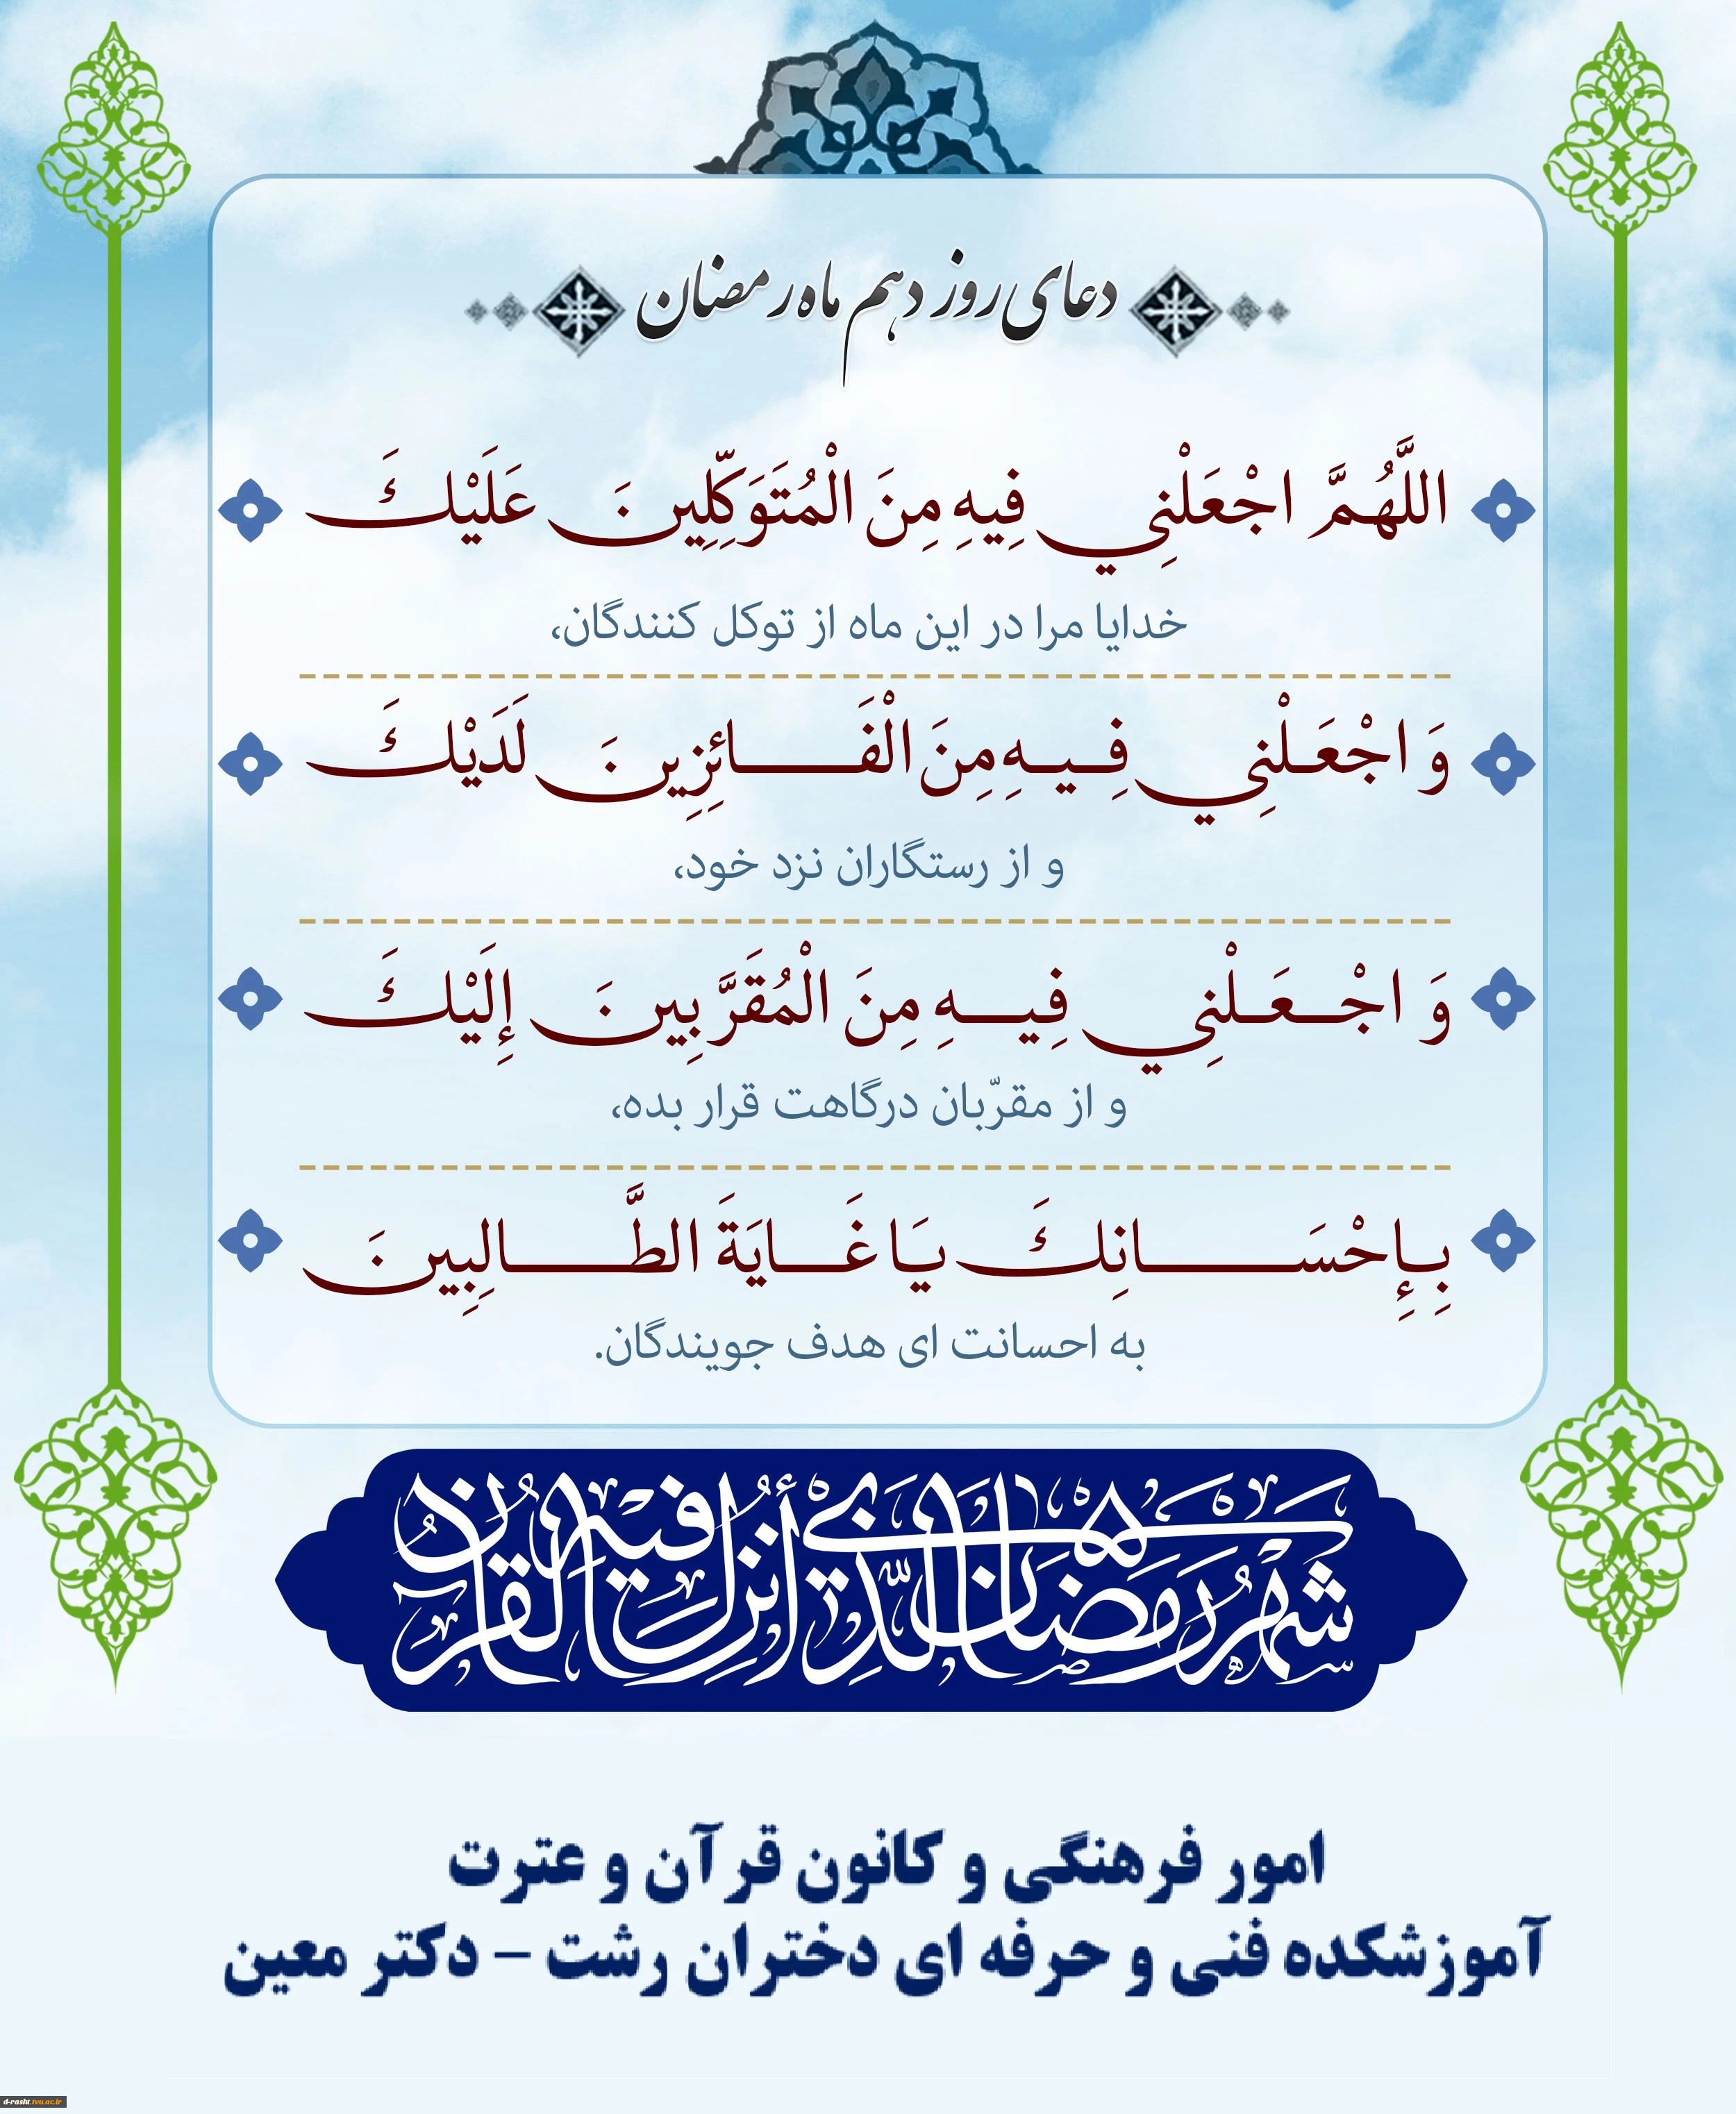 دعای روز دهم ماه رمضان
اللَّهُمَّ اجْعَلْنِي فِيهِ مِنَ الْمُتَوَكِّلِينَ عَلَيْكَ
خدایا مرا در این ماه از توکل کنندگان،
وَ اجْعَلْنِي فِيهِ مِنَ الْفَائِزِينَ لَدَيْكَ
و از رستگاران نزد خود،
وَ اجْعَلْنِي فِيهِ مِنَ الْمُقَرَّبِينَ إِلَيْكَ
و از مقرّبان درگاهت قرار بده،
بِإِحْسَانِكَ يَا غَايَةَ الطَّالِبِينَ
به احسانت ای هدف جویندگان.
شهر رمضان الّذي أنزل فيه القرآن
امور فرهنگی و کانون قرآن و عترت
آموزشکده فنی و حرفه ای دختران رشت – دکتر معین
d-rasht.tvu.ac.ir